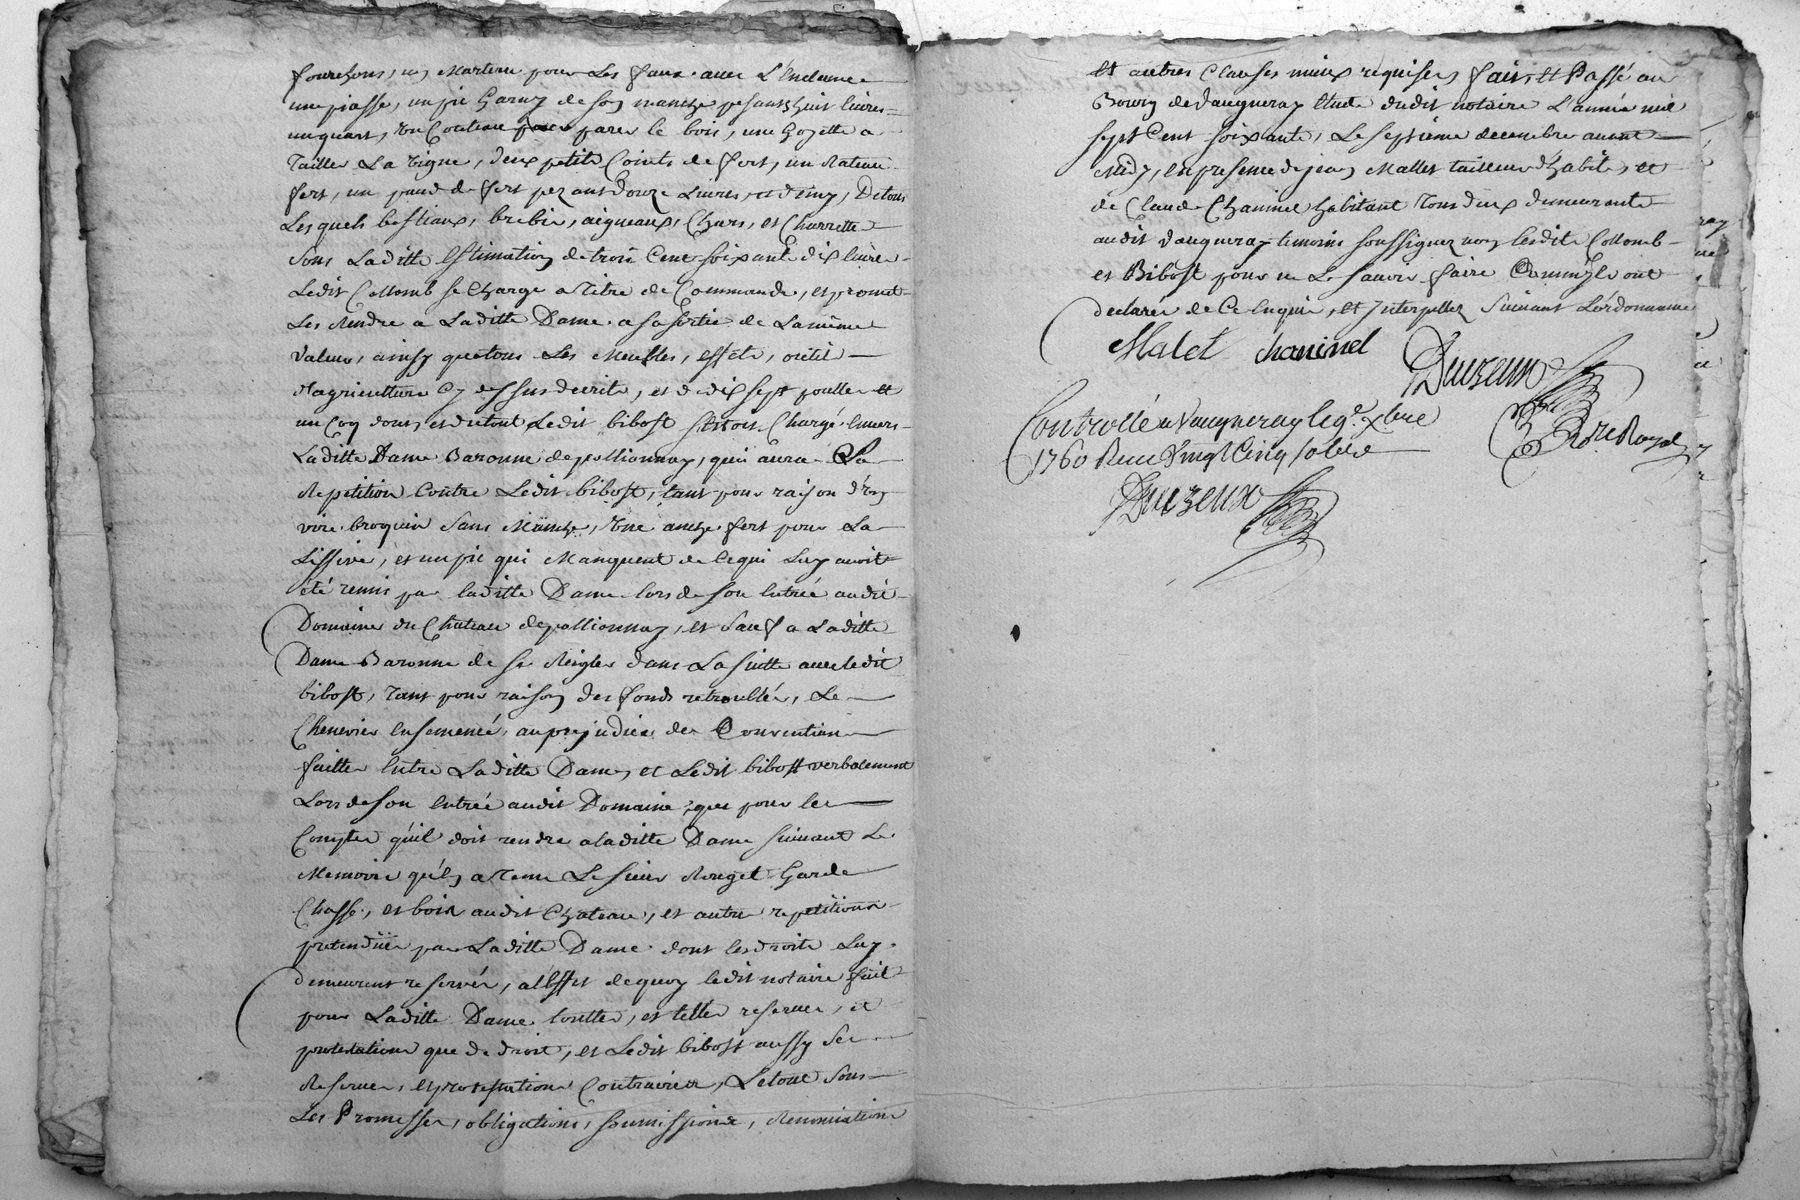 fourchons, un Marteau pour les faux avec L'enclume
une piasse, un pic Garny de son manche pesants huit livres
un quart, un Couteau pour parer le bois, une Goyette a
Tailler La vigne, deux petits Coints de fert, un Rateau
fert, un paud de fert pezant douze Livres et demy, De tous
Lesquels bestiaux, brebis, aigneaux, Chars, et Charrette
sous Laditte Estimation de trois Cent soixante dix livres
Ledit Collomb se Charge a titre de Commande, et promet
Les Rendre a Laditte Dame a sa sortie de La même
valeur, ainsy que tous Les Meubles, effets, outils
d'agriculture cy dessus decrits, et de dix sept poulles et
un Coq dons, et du tout Ledit bibost s'étoit Chargé Envers
Laditte Dame Baronne de pollionnay, qui aura La
Repetition Contre Ledit bibost, tant pour raison d'un
broquin sans Manche, une anche fert pour La
Lissive, et un pic qui Manquent de Ce qui Luy avoit
été remis par laditte Dame lors de son Entrée au dit
Domaine du Chateau de pollionnay, et sauf a Laditte
Dame Baronne de se Reigler dans La suitte avec ledit
bibost, tant pour raison des fonds retroublés, Le
Chenevier Ensemencé, au prejudice des Conventions
faittes Entre Laditte Dame, et Ledit bibost verbalement
Lors de son Entrée audit Domaine, que pour les
Comptes qu'il doit rendre a laditte Dame suivant Le
Memoire qu'en a Tenu Le sieur Rouget Garde
Chasse, et bois audit Chateau, et autres repetitions
pretendües par Laditte Dame dont les droits Luy
demeurent reservés, a l'Effet de quoy ledit notaire fait
pour Laditte Dame touttes, et telles reserves, et
protestations que de droit, et Ledit bibost aussy ses
Reserves, et protestations Contraires, Le tout sous
Les Promesses, obligations, soumissions, Renonciations
et autres Clauses mieux requises, fait, et Passé au
Bourg de Vaugneray Etude dudit notaire L'année mil
sept Cent soixante, Le septieme decembre avant
Midy, en presence de jean Mallet tailleur d'habits, et
de Claude Chaninel habitant Tous deux demeurants
audit Vaugneray temoins soussignez non lesdits Collomb
et Bibost pour ne Le sauoir faire Comm'ils ont
declarés de Ce Enquis, et Interpellez suivant L'ordonnance
Malet chaninel
Duizeux
No.re Royal
Controllé a Vaugneray le 9e xbre
1760 Receu Vingt Cinq sols
Duizeux